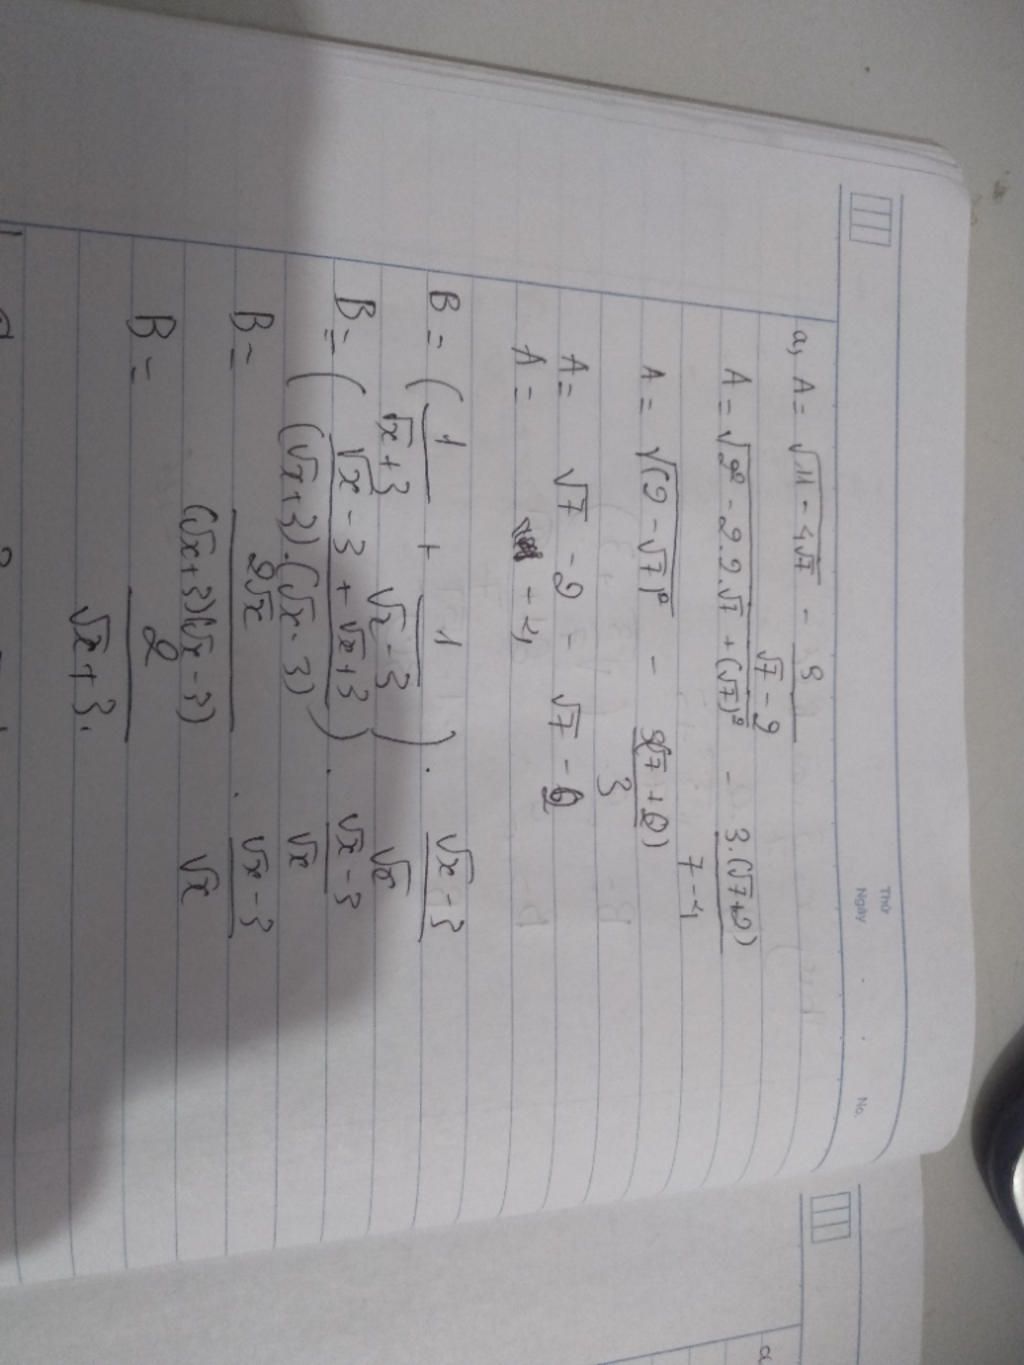 Thứ
Ngày . . No.
a, A = √(11 - 4√7) - 3/(√7 - 2)
A = √(2² - 2.2.√7 + (√7)²) - 3.(√7+2)/(7 - 4)
A = √((2 - √7)²) - 3(√7 + 2)/3
A = √7 - 2 - √7 - 2
A = - 4
B = (1/(√x+3) + 1/(√x - 3)) . (√x - 3)/√x
B = ((√x - 3 + √x + 3)/((√x + 3).(√x - 3))) . (√x - 3)/√x
B = 2√x/((√x+3)(√x - 3)) . (√x - 3)/√x
B = 2/(√x + 3).
a